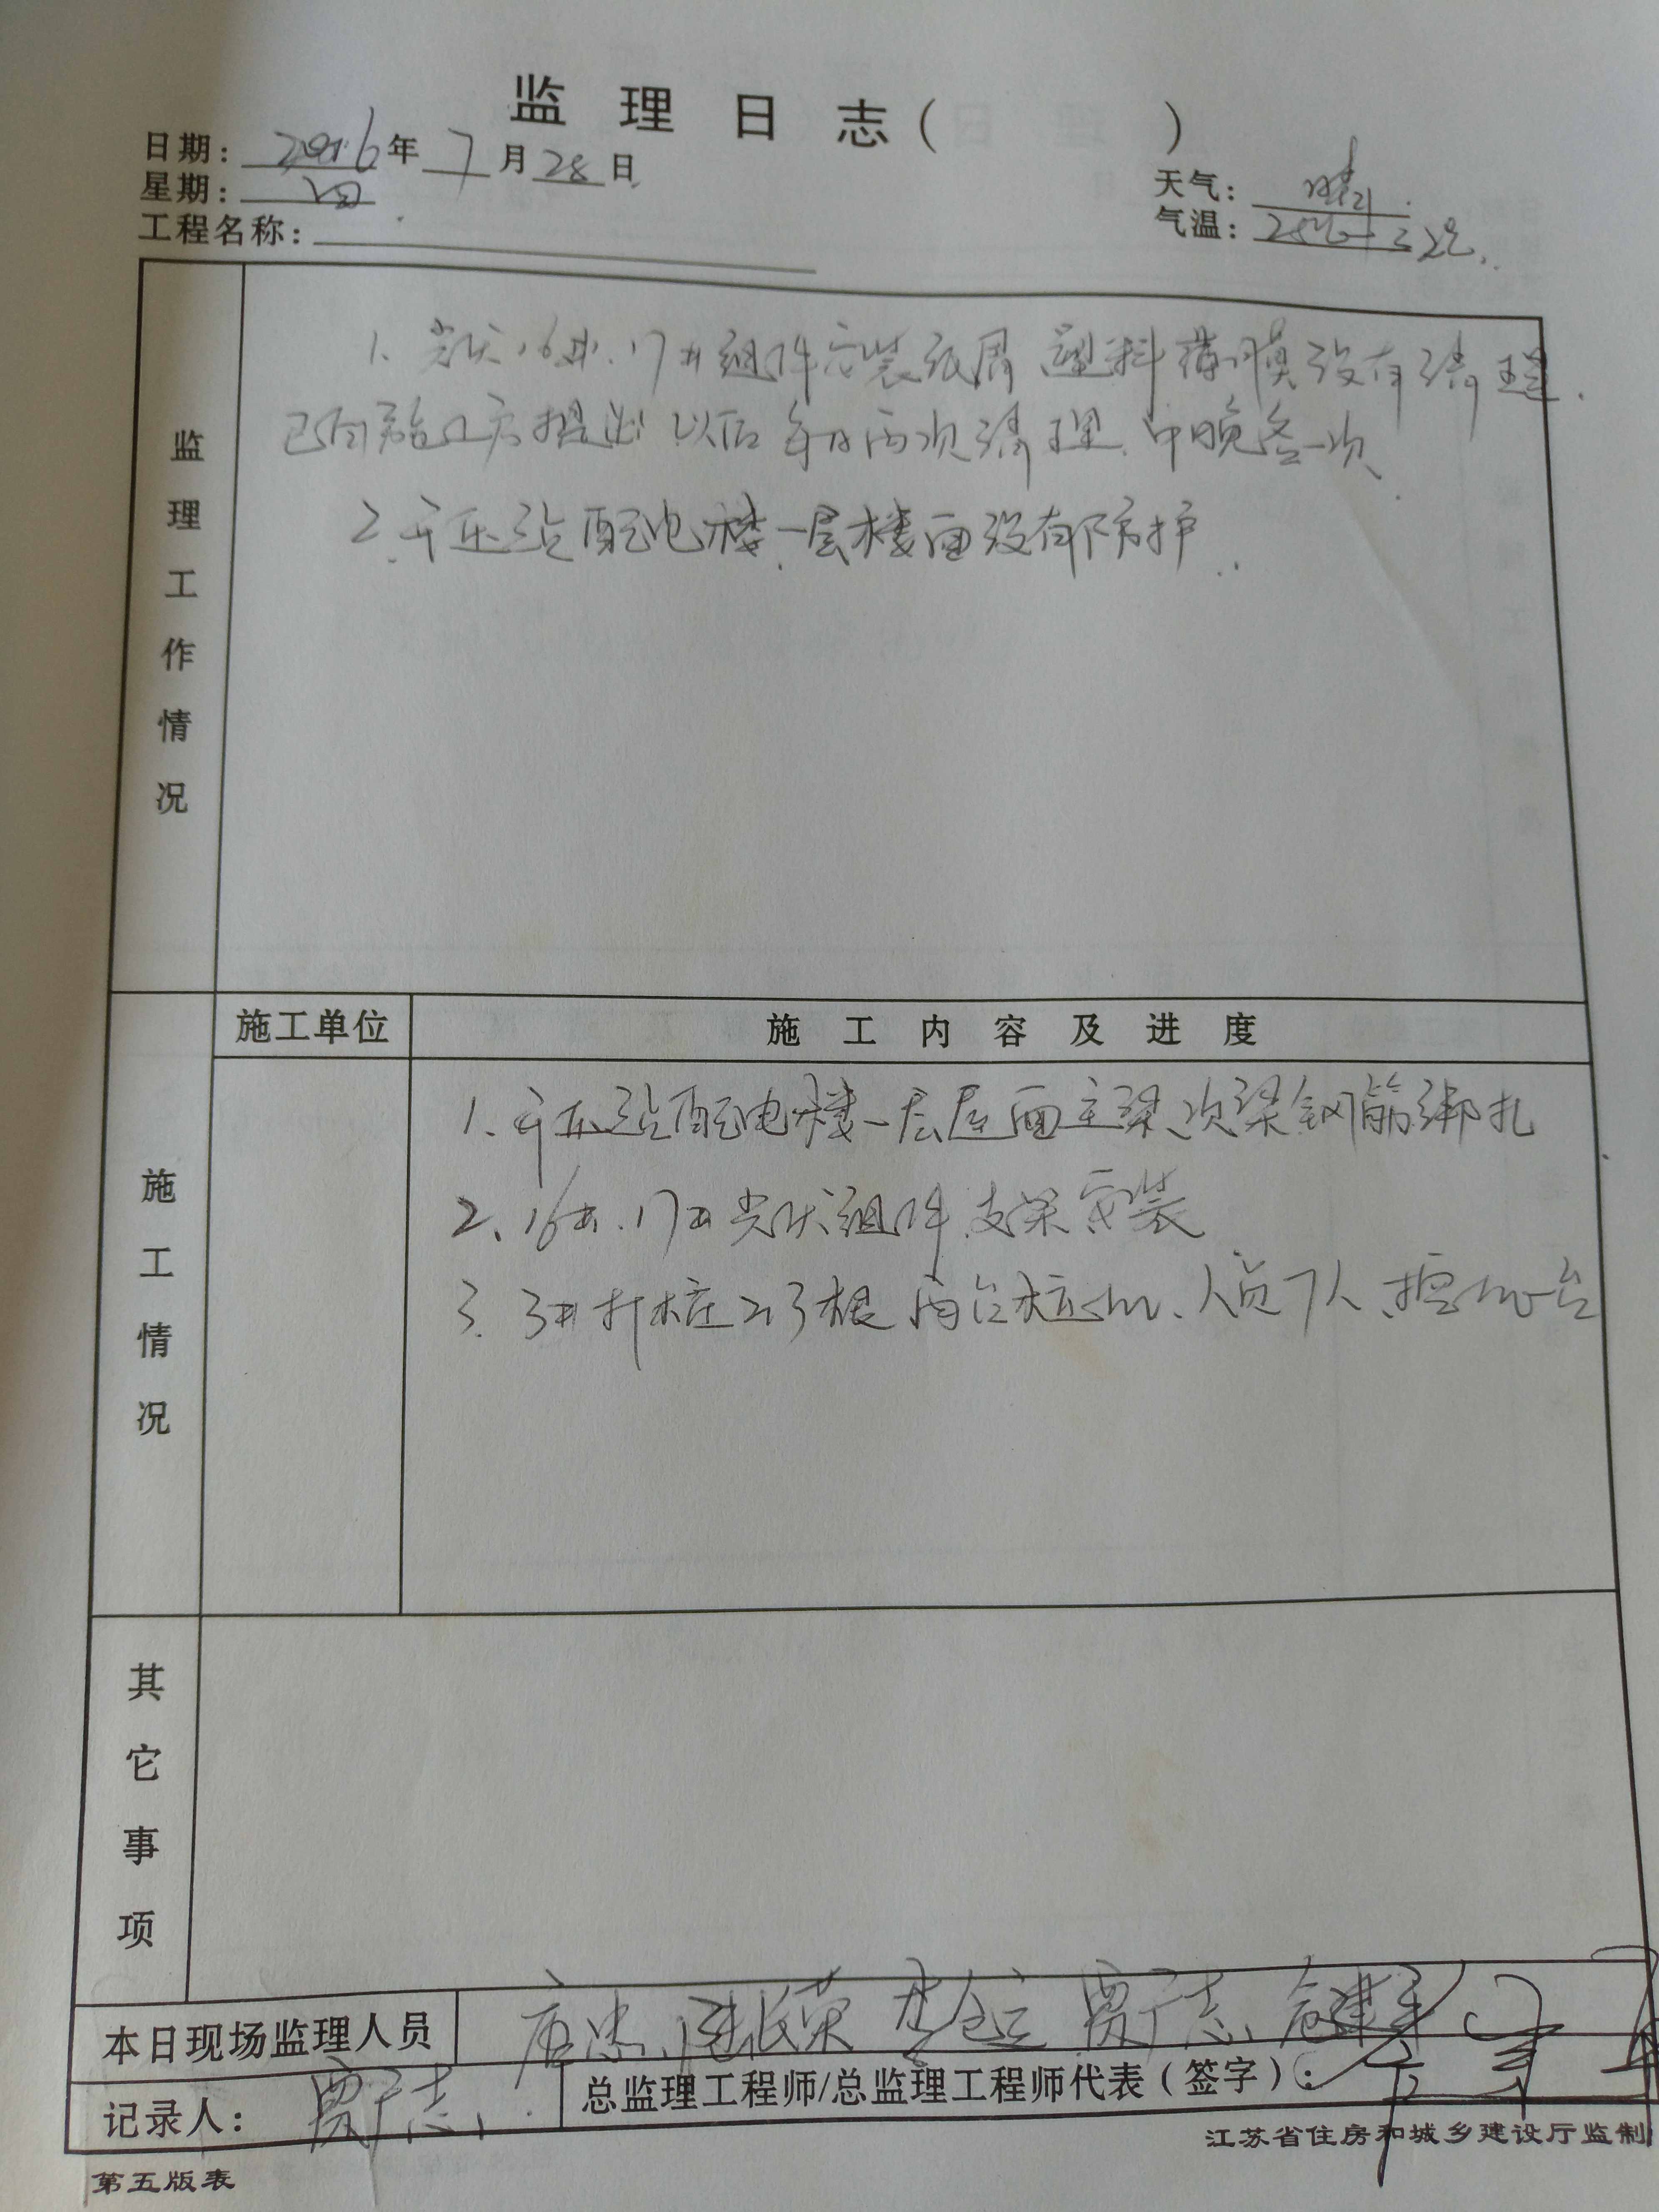 监理日志( )
日期: 2016年7月28日
星期: 四
天气: 晴
气温: 25℃-32℃
工程名称:
监理工作情况
1. 光伏16#.17#组件安装纸屑 塑料薄膜没有清理.
已向施工方提出以后每日两次清理.中晚各一次.
2.升压站配电楼一层楼面没有防护
施工情况
施工单位
施工内容及进度
1.升压站配电楼一层屋面主梁、次梁钢筋绑扎
2、16#.17#光伏组件支架安装
3. 3#打桩213根 两台桩机、人员7人、挖机一台
其它事项
本日现场监理人员 贾广志
记录人: 贾广志
总监理工程师/总监理工程师代表(签字):
江苏省住房和城乡建设厅监制
第五版表